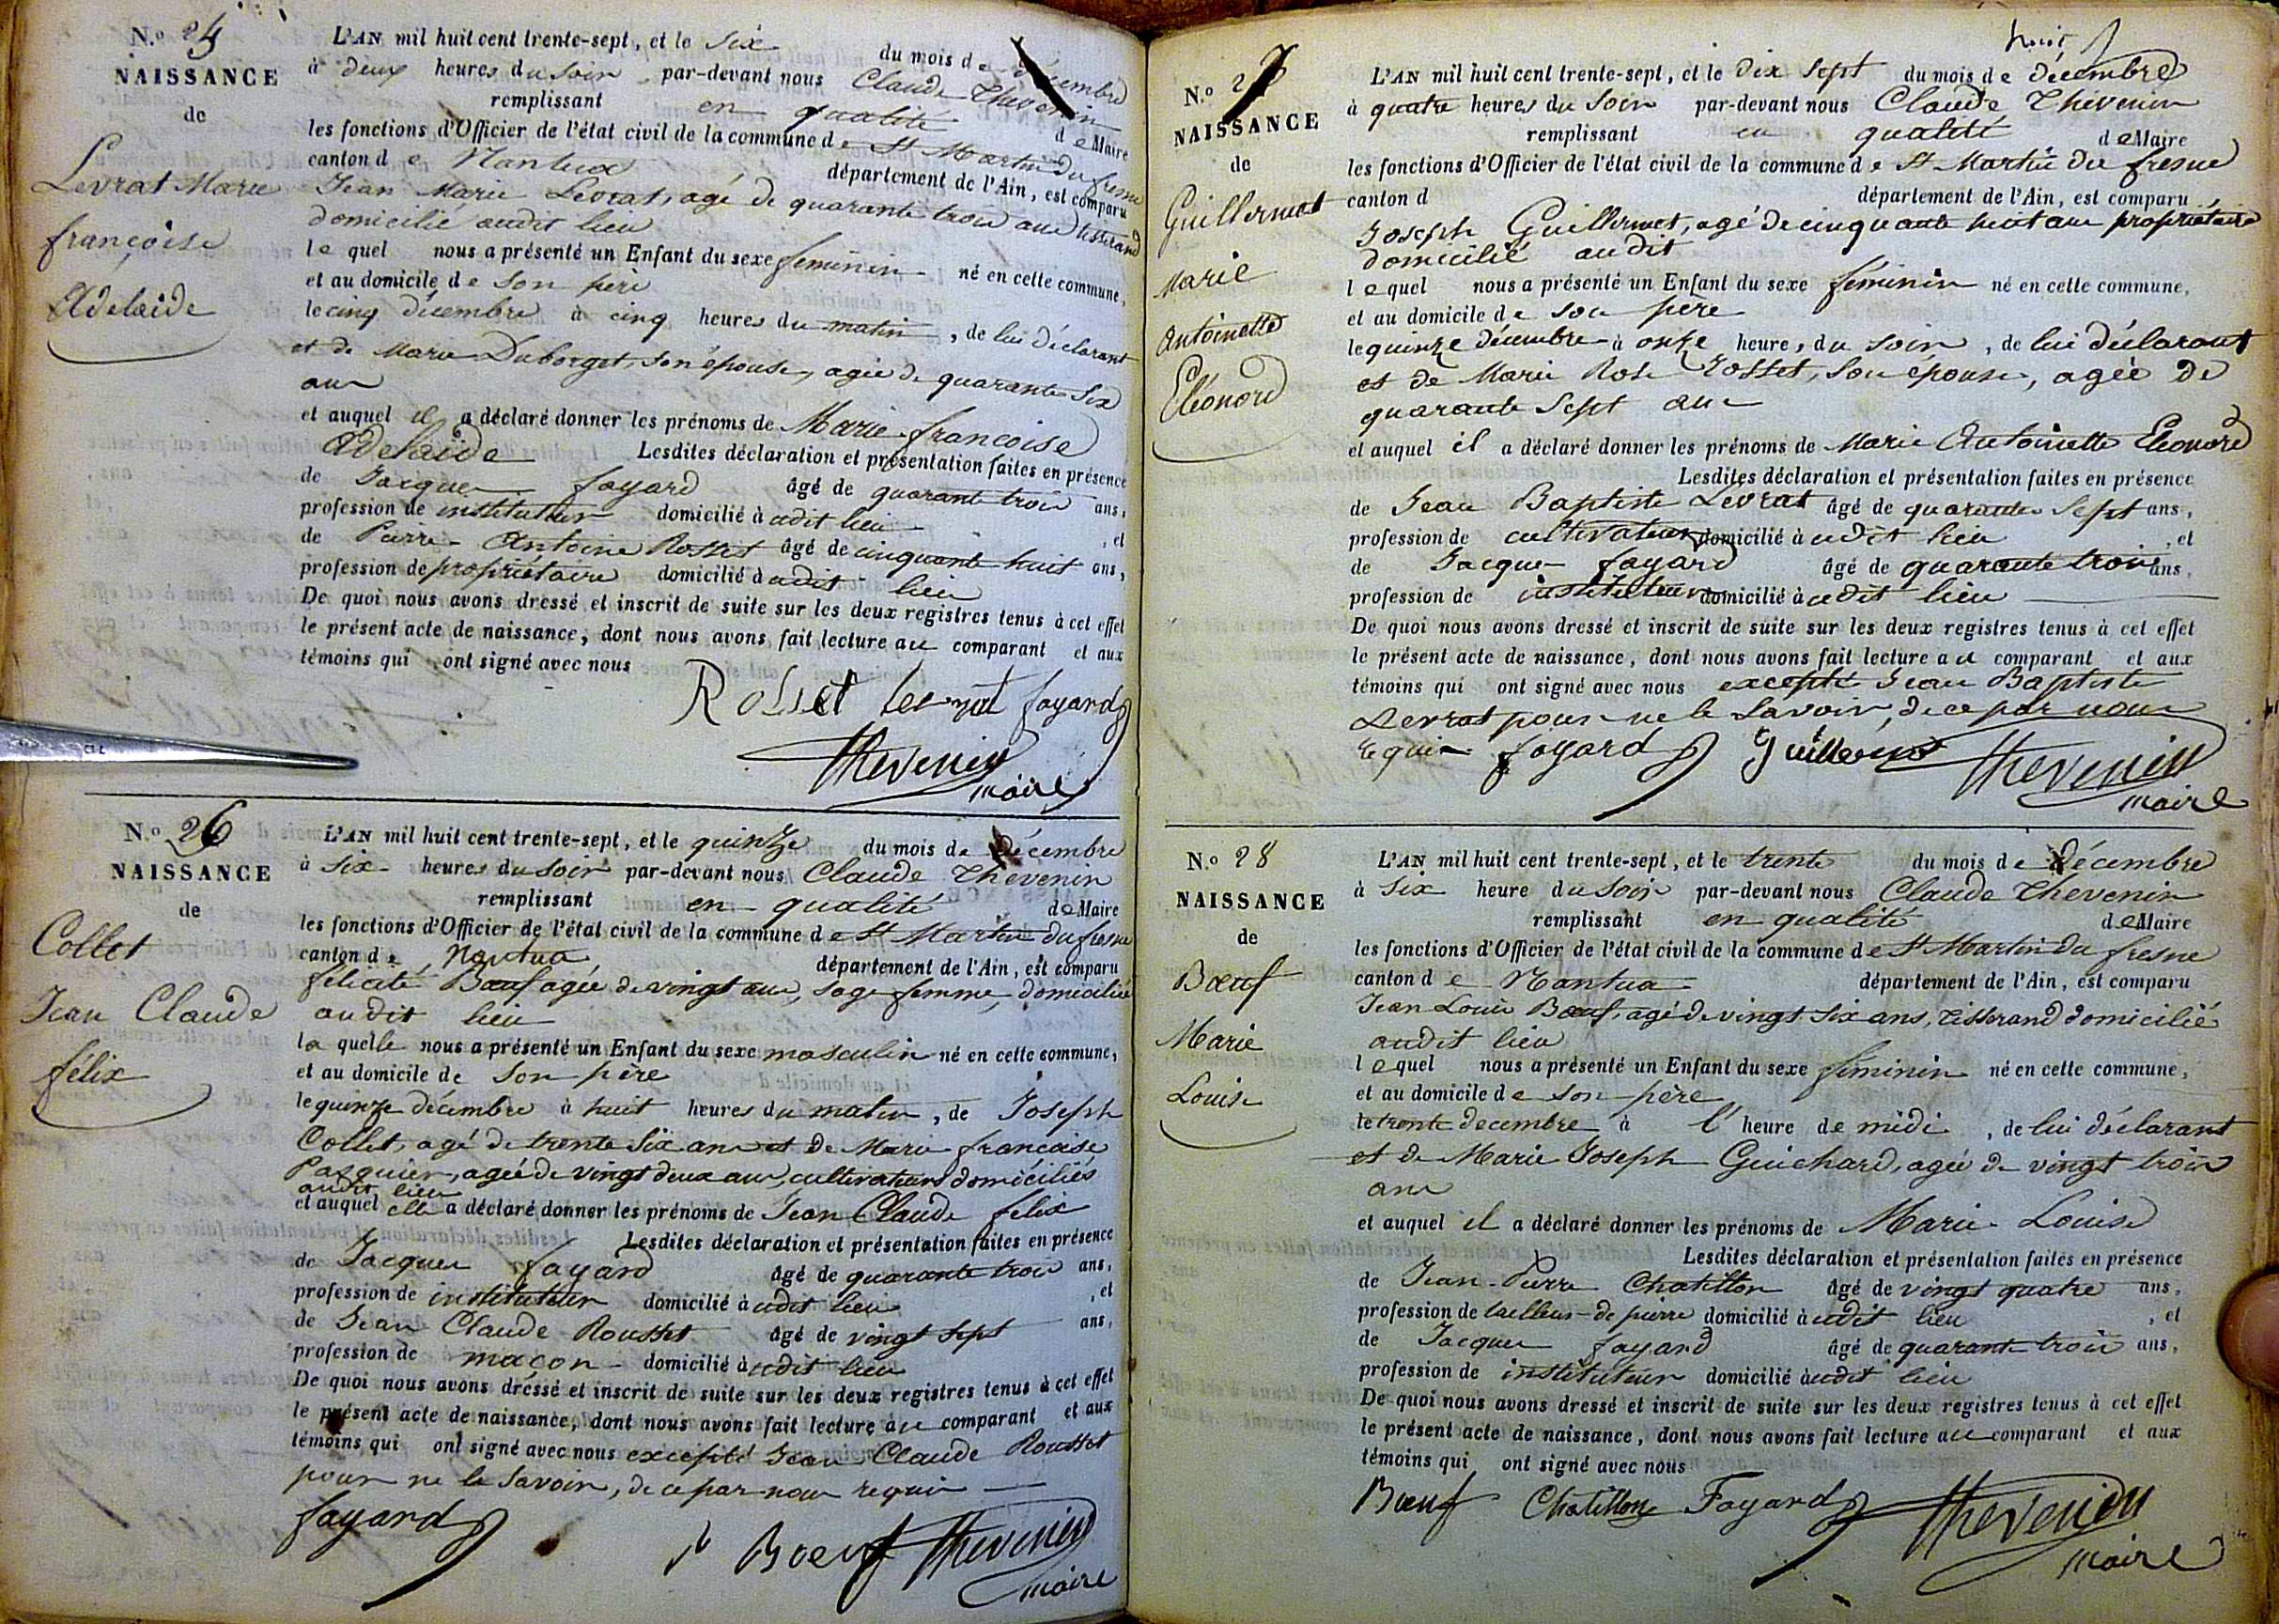 N.o 25
NAISSANCE
de
Levrat Marie
françoise
Adelaide
L'AN mil huit cent trente-sept, et le six du mois de décembre
à deux heures du soir par-devant nous Claude Thevenin
remplissant en qualité de Maire
les fonctions d'Officier de l'état civil de la commune de St Martin du fresne
canton de Nantua département de l'Ain, est comparu
Jean Marie Levrat, agé de quarante trois ans tisserand
domicilié audit lieu
lequel nous a présenté un Enfant du sexe féminin né en cette commune,
et au domicile de son père
le cinq décembre à cinq heures du matin, de lui déclarant
et de Marie Duborget, son épouse, agée de quarante six
ans
et auquel il a déclaré donner les prénoms de Marie françoise
Adelaïde Lesdites déclaration et présentation faites en présence
de Jacques fayard âgé de quarante trois ans,
profession de instituteur domicilié à udit lieu, et
de Pierre Antoine Rosset âgé de cinquante huit ans,
profession de propriétaire domicilié à udit lieu
De quoi nous avons dressé et inscrit de suite sur les deux registres tenus à cet effet
le présent acte de naissance, dont nous avons fait lecture au comparant et aux
témoins qui ont signé avec nous
Rosset levrat fayard
Thevenin
maire
N.o 26
NAISSANCE
de
Collet
Jean Claude
félix
L'AN mil huit cent trente-sept, et le quinze du mois de décembre
à six heures du soir par-devant nous Claude Thevenin
remplissant en qualité de Maire
les fonctions d'Officier de l'état civil de la commune de St Martin du fresne
canton de Nantua département de l'Ain, est comparu
félicité Bœuf agée de vingt ans, sage femme, domiciliée
audit lieu
laquelle nous a présenté un Enfant du sexe masculin né en cette commune,
et au domicile de son père
le quinze décembre à huit heures du matin, de Joseph
Collet, agé de trente six ans et de Marie françoise
Pasquier, agée de vingt deux ans, cultivateurs domiciliés
audit lieu
et auquel elle a déclaré donner les prénoms de Jean Claude félix
Lesdites déclaration et présentation faites en présence
de Jacques fayard âgé de quarante trois ans,
profession de instituteur domicilié à udit lieu, et
de Jean Claude Rousset âgé de vingt sept ans,
profession de maçon domicilié à udit lieu
De quoi nous avons dressé et inscrit de suite sur les deux registres tenus à cet effet
le présent acte de naissance, dont nous avons fait lecture au comparant et aux
témoins qui ont signé avec nous excepté Jean Claude Rousset
pour ne le savoir, de ce par nous requis
fayard Bœuf Thevenin
maire
huit
N.o 27
NAISSANCE
de
Guillermet
Marie
Antoinette
Eléonord
L'AN mil huit cent trente-sept, et le dix sept du mois de décembre
à quatre heures du soir par-devant nous Claude Thévenin
remplissant en qualité de Maire
les fonctions d'Officier de l'état civil de la commune de St Martin du fresne
canton d département de l'Ain, est comparu
Joseph Guillermet, agé de cinquante huit ans propriétaire
domicilié audit
lequel nous a présenté un Enfant du sexe féminin né en cette commune,
et au domicile de son père
le quinze décembre à onze heures du soir, de lui déclarant
et de Marie Rose Josset, son épouse, agée de
quarante sept ans
et auquel il a déclaré donner les prénoms de Marie Antoinette Eléonord
Lesdites déclaration et présentation faites en présence
de Jean Baptiste Levrat âgé de quarante sept ans,
profession de cultivateur domicilié à udit lieu, et
de Jacques fayard âgé de quarante trois ans,
profession de instituteur domicilié à udit lieu
De quoi nous avons dressé et inscrit de suite sur les deux registres tenus à cet effet
le présent acte de naissance, dont nous avons fait lecture au comparant et aux
témoins qui ont signé avec nous excepté Jean Baptiste
Levrat pour ne le savoir, de ce par nous
requis fayard Guillermet Thevenin
maire
N.o 28
NAISSANCE
de
Bœuf
Marie
Louise
L'AN mil huit cent trente-sept, et le trente du mois de décembre
à six heure du soir par-devant nous Claude Thevenin
remplissant en qualité de Maire
les fonctions d'Officier de l'état civil de la commune de St Martin du fresne
canton de Nantua département de l'Ain, est comparu
Jean Louis Bœuf, agé de vingt six ans, tisserand domicilié
audit lieu
lequel nous a présenté un Enfant du sexe féminin né en cette commune,
et au domicile de son père
le trente decembre à l'heure de midi, de lui déclarant
et de Marie Joseph Guichard, agée de vingt trois
ans
et auquel il a déclaré donner les prénoms de Marie Louise
Lesdites déclaration et présentation faites en présence
de Jean Pierre Chatillon âgé de vingt quatre ans,
profession de tailleur de pierre domicilié à udit lieu, et
de Jacques fayard âgé de quarante trois ans,
profession de instituteur domicilié à udit lieu
De quoi nous avons dressé et inscrit de suite sur les deux registres tenus à cet effet
le présent acte de naissance, dont nous avons fait lecture au comparant et aux
témoins qui ont signé avec nous
Bœuf Chatillon Fayard Thevenin
maire